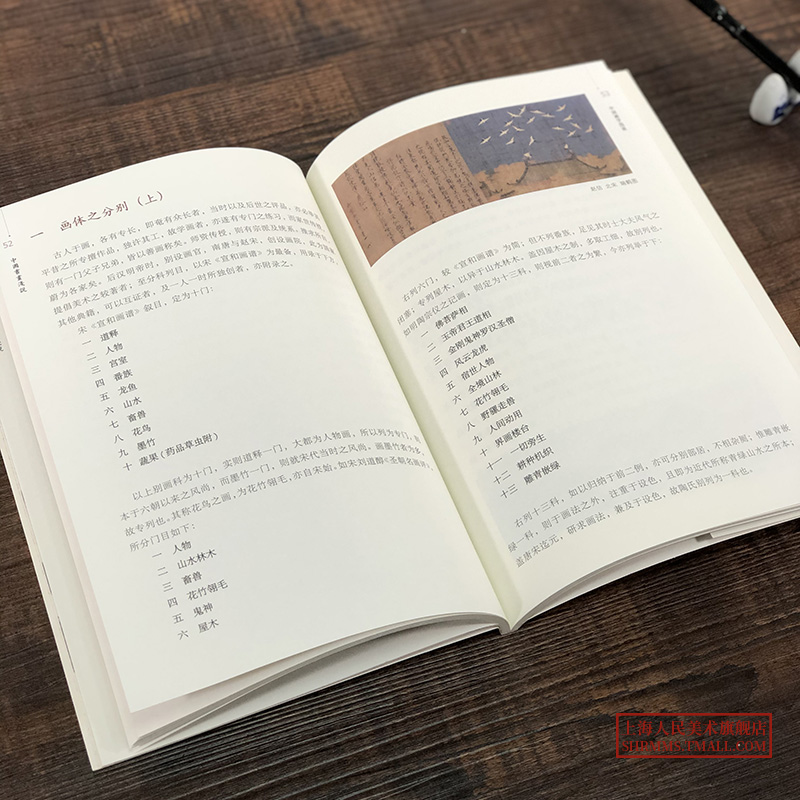 52
中国书画浅说
一 画体之分别（上）
古人于画，各有专长，即奄有众长者，当时以及后世之评品，亦必
平昔之所专擅作品，强许其工，故学画者，亦遂有专门之练习，而家
则有一门父子兄弟，皆以善画称矣。师资传授，则有宗派及统系，
蔚为各家矣。后汉明帝时，别设画官，南唐与赵宋，创设画院，此为
提倡美术之较著者；至分科列目，以宋《宣和画谱》为最备，用录于下方，
其他典籍，可以互证者，及一人一时所独创者，亦附录之。
宋《宣和画谱》叙目，定为十门：
一 道释
二 人物
三 宫室
四 番族
五 龙鱼
六 山水
七 畜兽
八 花鸟
九 墨竹
十 蔬果（药品草虫附）
以上别画科为十门，实则道释一门，大都为人物画，所以列为专门，则
本于六朝以来之风尚，而墨竹一门，则就宋代当时之风尚，画墨竹者为多，
故专列也。其称花鸟之画，为花竹翎毛，亦自宋始。如宋刘道醇《圣朝名画评》，
所分门目如下：
一 人物
二 山水林木
三 畜兽
四 花竹翎毛
五 鬼神
六 屋木
53
赵佶 北宋 瑞鹤图
右列六门，较《宣和画谱》为简，但不列番族，足见其时士大夫风气之
闭塞；专列屋木，以异于山水林木，盖因屋木之制，多取工细，故别列也。
如明陶宗仪之记画，则定为十三科，则视前二者之为繁，今亦列举于下：
一 佛菩萨相
二 玉帝君王道相
三 金刚鬼神罗汉圣僧
四 风云龙虎
五 宿世人物
六 全境山林
七 花竹翎毛
八 野骡走兽
九 人间动用
十 界画楼台
十一 一切旁生
十二 耕种机织
十三 雕青嵌绿
右列十三科，如以归纳于前二例，亦可分别部居，不相杂厕；惟雕青嵌
绿一科，则于画法之外，注重于设色，且即为近代所称青绿山水之所本；
盖唐宋迄元，研求画法，兼及于设色，故陶氏别列为一科也。
上海人民美术旗舰店
SHRMMS.TMALL.COM